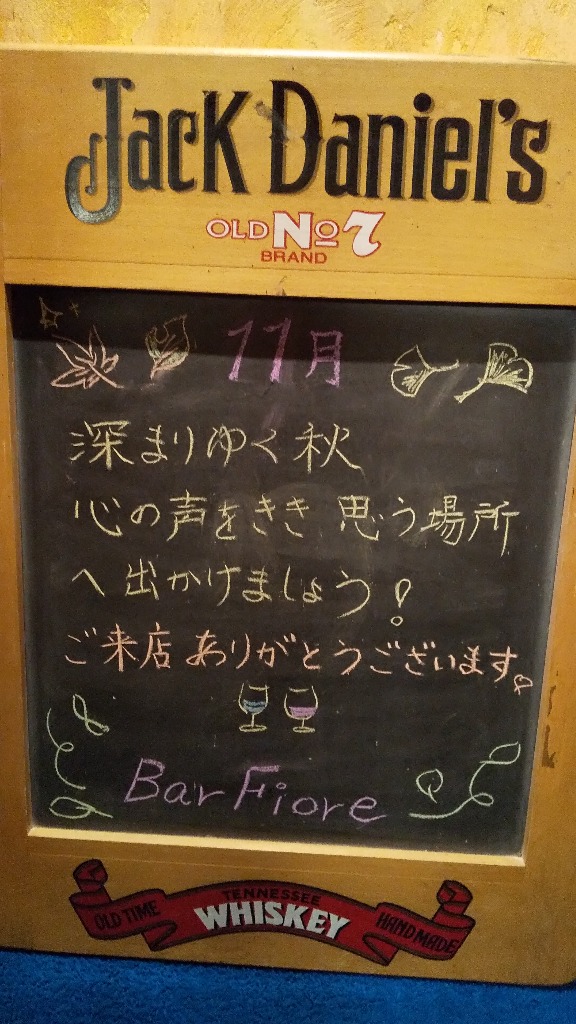 Jack Daniel's
OLD No 7
BRAND
11月
深まりゆく秋
心の声をきき 思う場所
へ出かけましょう!
ご来店ありがとうございます。
Bar Fiore
TENNESSEE
OLD TIME WHISKEY HAND MADE